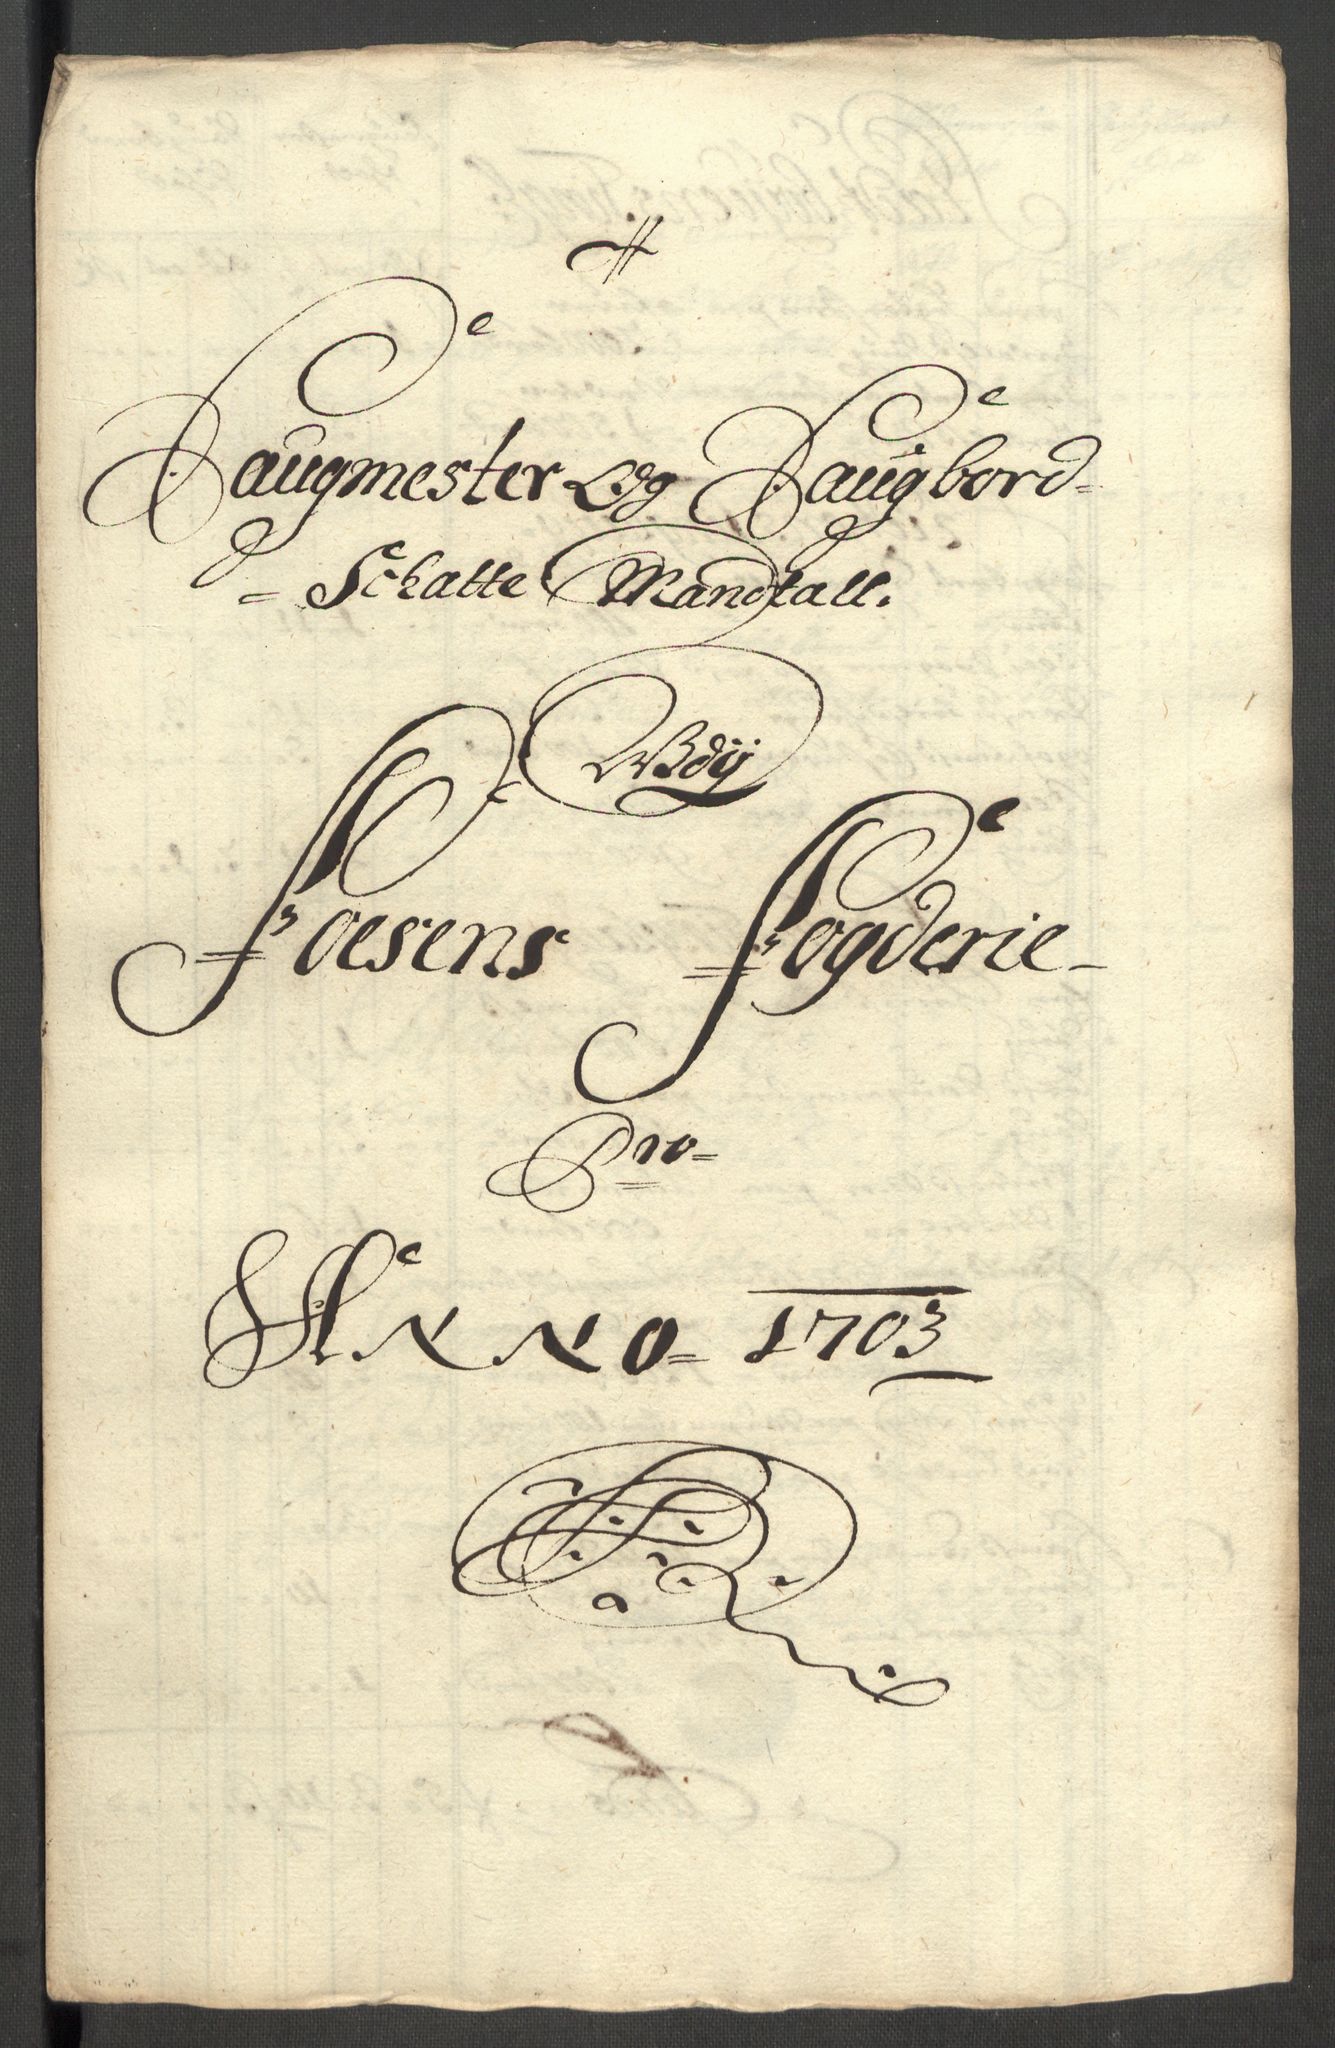 Saugmester Og Saugbord-
= Schatte Mandtall.
Udj
Foesens Fogderie-
Pro=
Anno= 1703